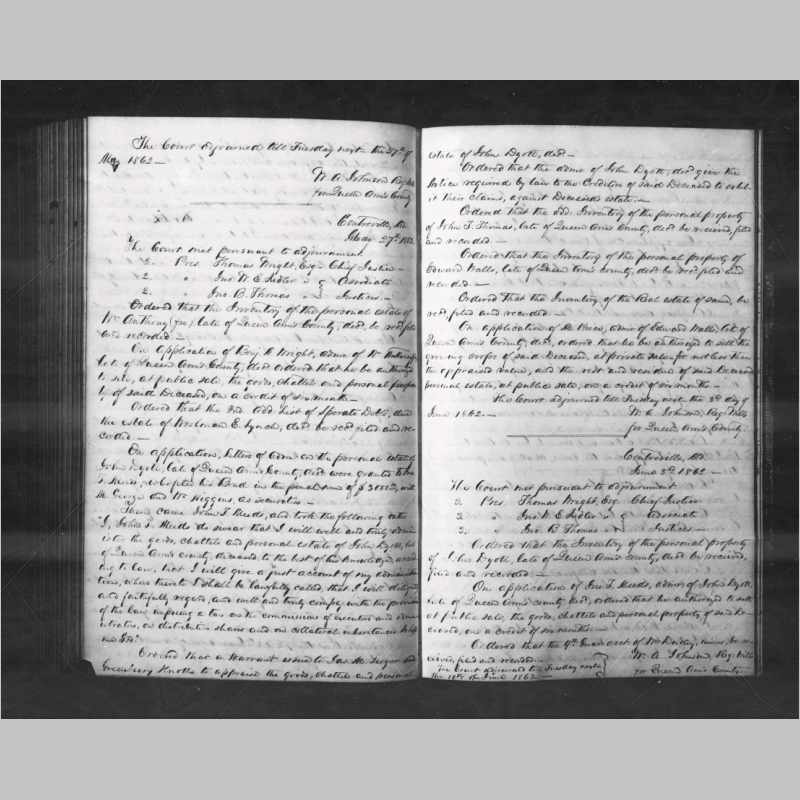 The Court adjourned till Tuesday next the 27th of
May 1862 —
W. A. Johnson Reg. Wills
for Queen Ann's County
Centreville, Md.
May 27th 1862
The Court met pursuant to adjournment
2. Pres. Thomas Wright, Esq. Chief Justice —
2. " Jno. W. E. Sudler " & Associate
2. " Jno. B. Thomas " & Justices —
Ordered that the Inventory of the personal estate of
Wm. Anthony (fn) late of Queen Ann's County, decd, be recd, filed
and recorded —
On application of Benj. R. Wright, admr of Wm Anthony
late of Queen Ann's County, decd ordered that he be authorized
to sell, at public sale, the goods, chattels and personal proper
ty of said Deceased, on a credit of six months —
Ordered that the 3rd add. List of Sperate Debts, due
the estate of E. Lynch, decd, be recd, filed and re
corded —
On application, letters of admn on the personal estate of
John Dyott, late of Queen Ann's County, decd were granted to
S. Meeds, who filed his Bond in the penal sum of $ with
and Wm Higgins, as securities —
Then came John S. Meeds, and took the following oath
"I, John S. Meeds do swear that I will well and truly admin
ister the goods, chattels and personal estate of John Dyott, late
of Queen Ann's county, deceased to the best of my knowledge, accord
ing to law, that I will give a just account of my administra
tion, when thereto I shall be lawfully called, that I will diligently
and faithfully regard, and well and truly comply with the provisions
of the law, imposing a tax on the commissions of executors and admin
istrators, on distributive shares and on collateral inheritances. So help
me God."
Ordered that a Warrant issue to Jas. H. and
Greenbury to appraise the goods, chattels and personal
estate of John Dyott, decd —
Ordered that the admr of John Dyott, decd give the
Notice required by law to the Creditors of said Deceased to exhib
it their claims, against Deceased's estate. —
Ordered that the add. Inventory of the personal property
of John T. Thomas, late of Queen Ann's County, decd be received, filed
and recorded —
Ordered that the Inventory of the personal property of
Edward Walls, late of Queen Ann's County, decd be recd, filed and
recorded —
Ordered that the Inventory of the Real estate of same, be
recd, filed and recorded —
On application of admr of Edward Walls, late of
Queen Ann's County, decd, ordered that he be authorized to sell the
growing crops of said Deceased, at private sale, for not less than
the appraised value, and the rest and residue of said Deceased's
personal estate, at public sale, on a credit of six months —
The Court adjourned till Tuesday next the 3rd day of
June 1862. —
W. A. Johnson, Reg. Wills
for Queen Ann's County
Centreville, Md.
June 3rd 1862 —
The Court met pursuant to adjournment
2. Pres. Thomas Wright, Esq. Chief Justice
2. " Jno. W. E. Sudler " & Associate
2. " Jno. B. Thomas " & Justices —
Ordered that the Inventory of the personal property
of John Dyott, late of Queen Ann's County, decd be received,
filed and recorded —
On application of Jno. S. Meeds, admr of John Dyott,
late of Queen Ann's county, decd, ordered that he be authorized to sell
at public sale, the goods, chattels and personal property of said de
ceased, on a credit of six months —
Ordered that the 9th Guard. acct of Wm minor, be re
ceived, filed and recorded —
The Court adjourned to Tuesday next
the 10th of June 1862 —
W. A. Johnson Reg. Wills
for Queen Ann's County